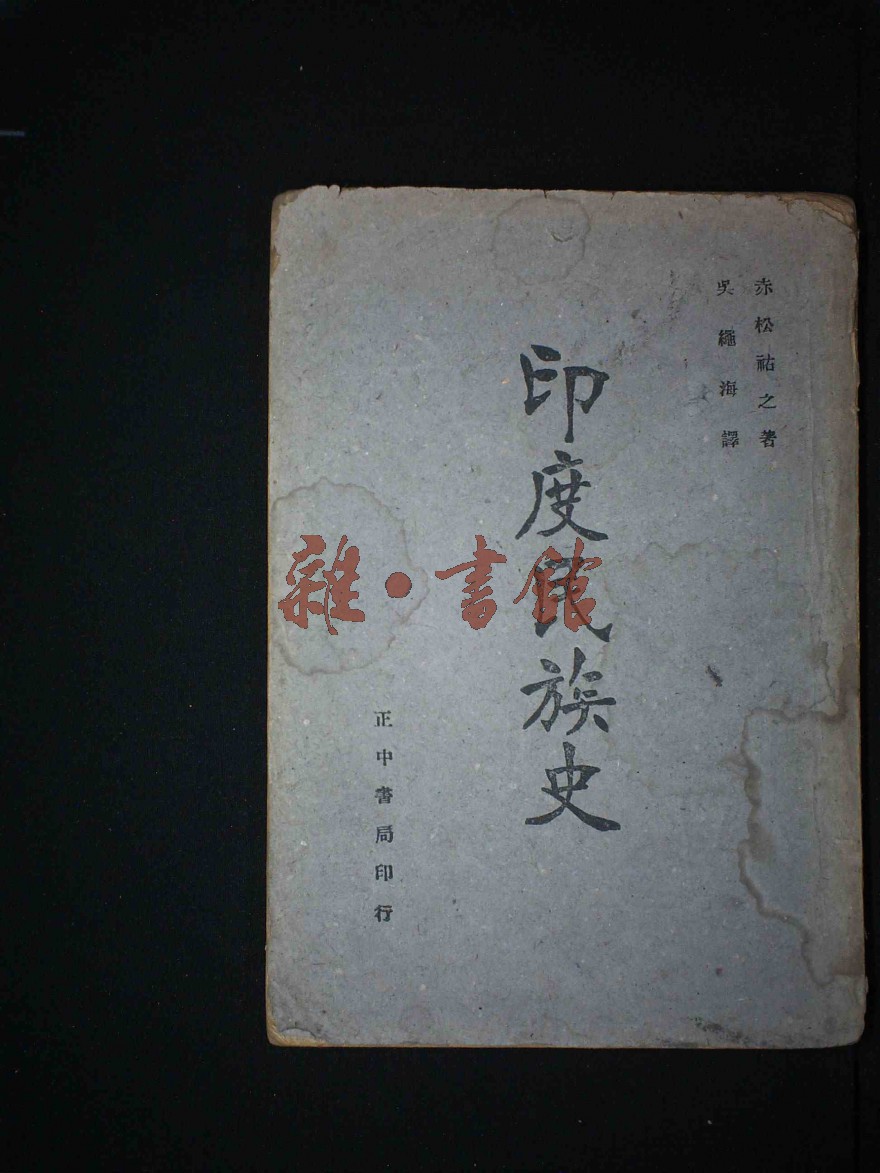 赤松祐之著
吳繩海譯
印度民族史
正中書局印行
雜·書館